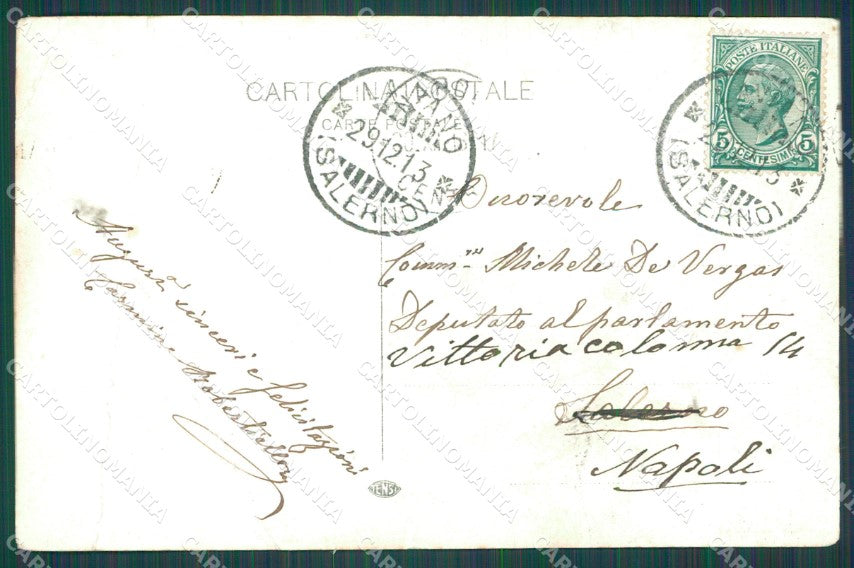 CARTOLINA POSTALE
29.12.13
(SALERNO)
POSTE ITALIANE
5 CENTESIMI 5
(SALERNO)
Onorevole
Comm.re Michele De Vergas
Deputato al parlamento
Vittoria Colonna 14
Salerno
Napoli
Auguri sinceri e felicitazioni
Carmine
CARTOLINOMANIA